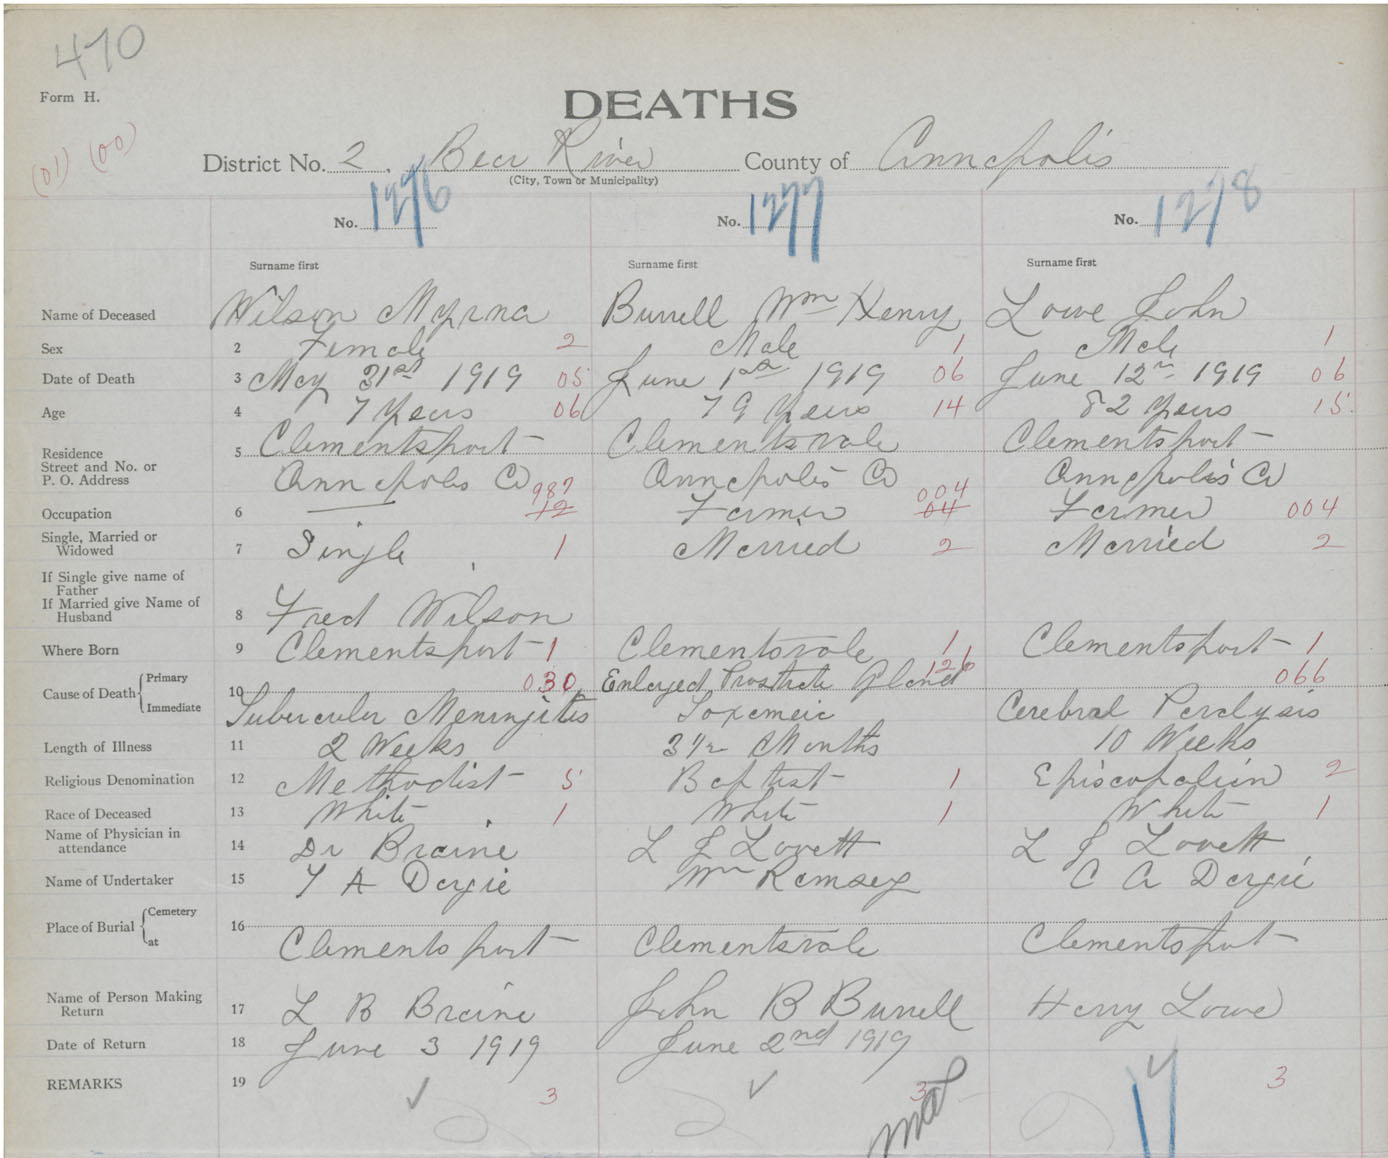 470
Form H.
DEATHS
(01) (00)
District No. 2. Bear River County of Annapolis
(City, Town or Municipality)
No. 1276 No. 1277 No. 1278
Surname first Surname first Surname first
Name of Deceased Wilson Myrna Burrell Wm Henry Lowe John
Sex 2 Female 2 Male 1 Male 1
Date of Death 3 May 31st 1919 05 June 1st 1919 06 June 12th 1919 06
Age 4 7 Years 06 79 Years 14 82 Years 15
Residence Street and No. or P. O. Address 5 Clementsport Clementsvale Clementsport
Annapolis Co Annapolis Co Annapolis Co
987 004
Occupation 6 — 12 Farmer 04 Farmer 004
Single, Married or Widowed 7 Single 1 Married 2 Married 2
If Single give name of Father
If Married give Name of Husband 8 Fred Wilson
Where Born 9 Clementsport 1 Clementsvale 1 Clementsport 1
Cause of Death { Primary 10 030 Enlarged Prostrate Gland 126 066
Immediate Tubercular Meningitis Toxemeia Cerebral Paralysis
Length of Illness 11 2 Weeks 3 1/2 Months 10 Weeks
Religious Denomination 12 Methodist 5 Baptist 1 Episcopalian 2
Race of Deceased 13 White 1 White 1 White 1
Name of Physician in attendance 14 Dr Braine L J Lovett L J Lovett
Name of Undertaker 15 T A Dargie Wm Ramsey C A Dargie
Place of Burial { Cemetery 16
at Clementsport Clementsvale Clementsport
Name of Person Making Return 17 L B Braine John B Burrell Harry Lowe
Date of Return 18 June 3 1919 June 2nd 1919
REMARKS 19 ✓ 3 ✓ 3 ✓ 3